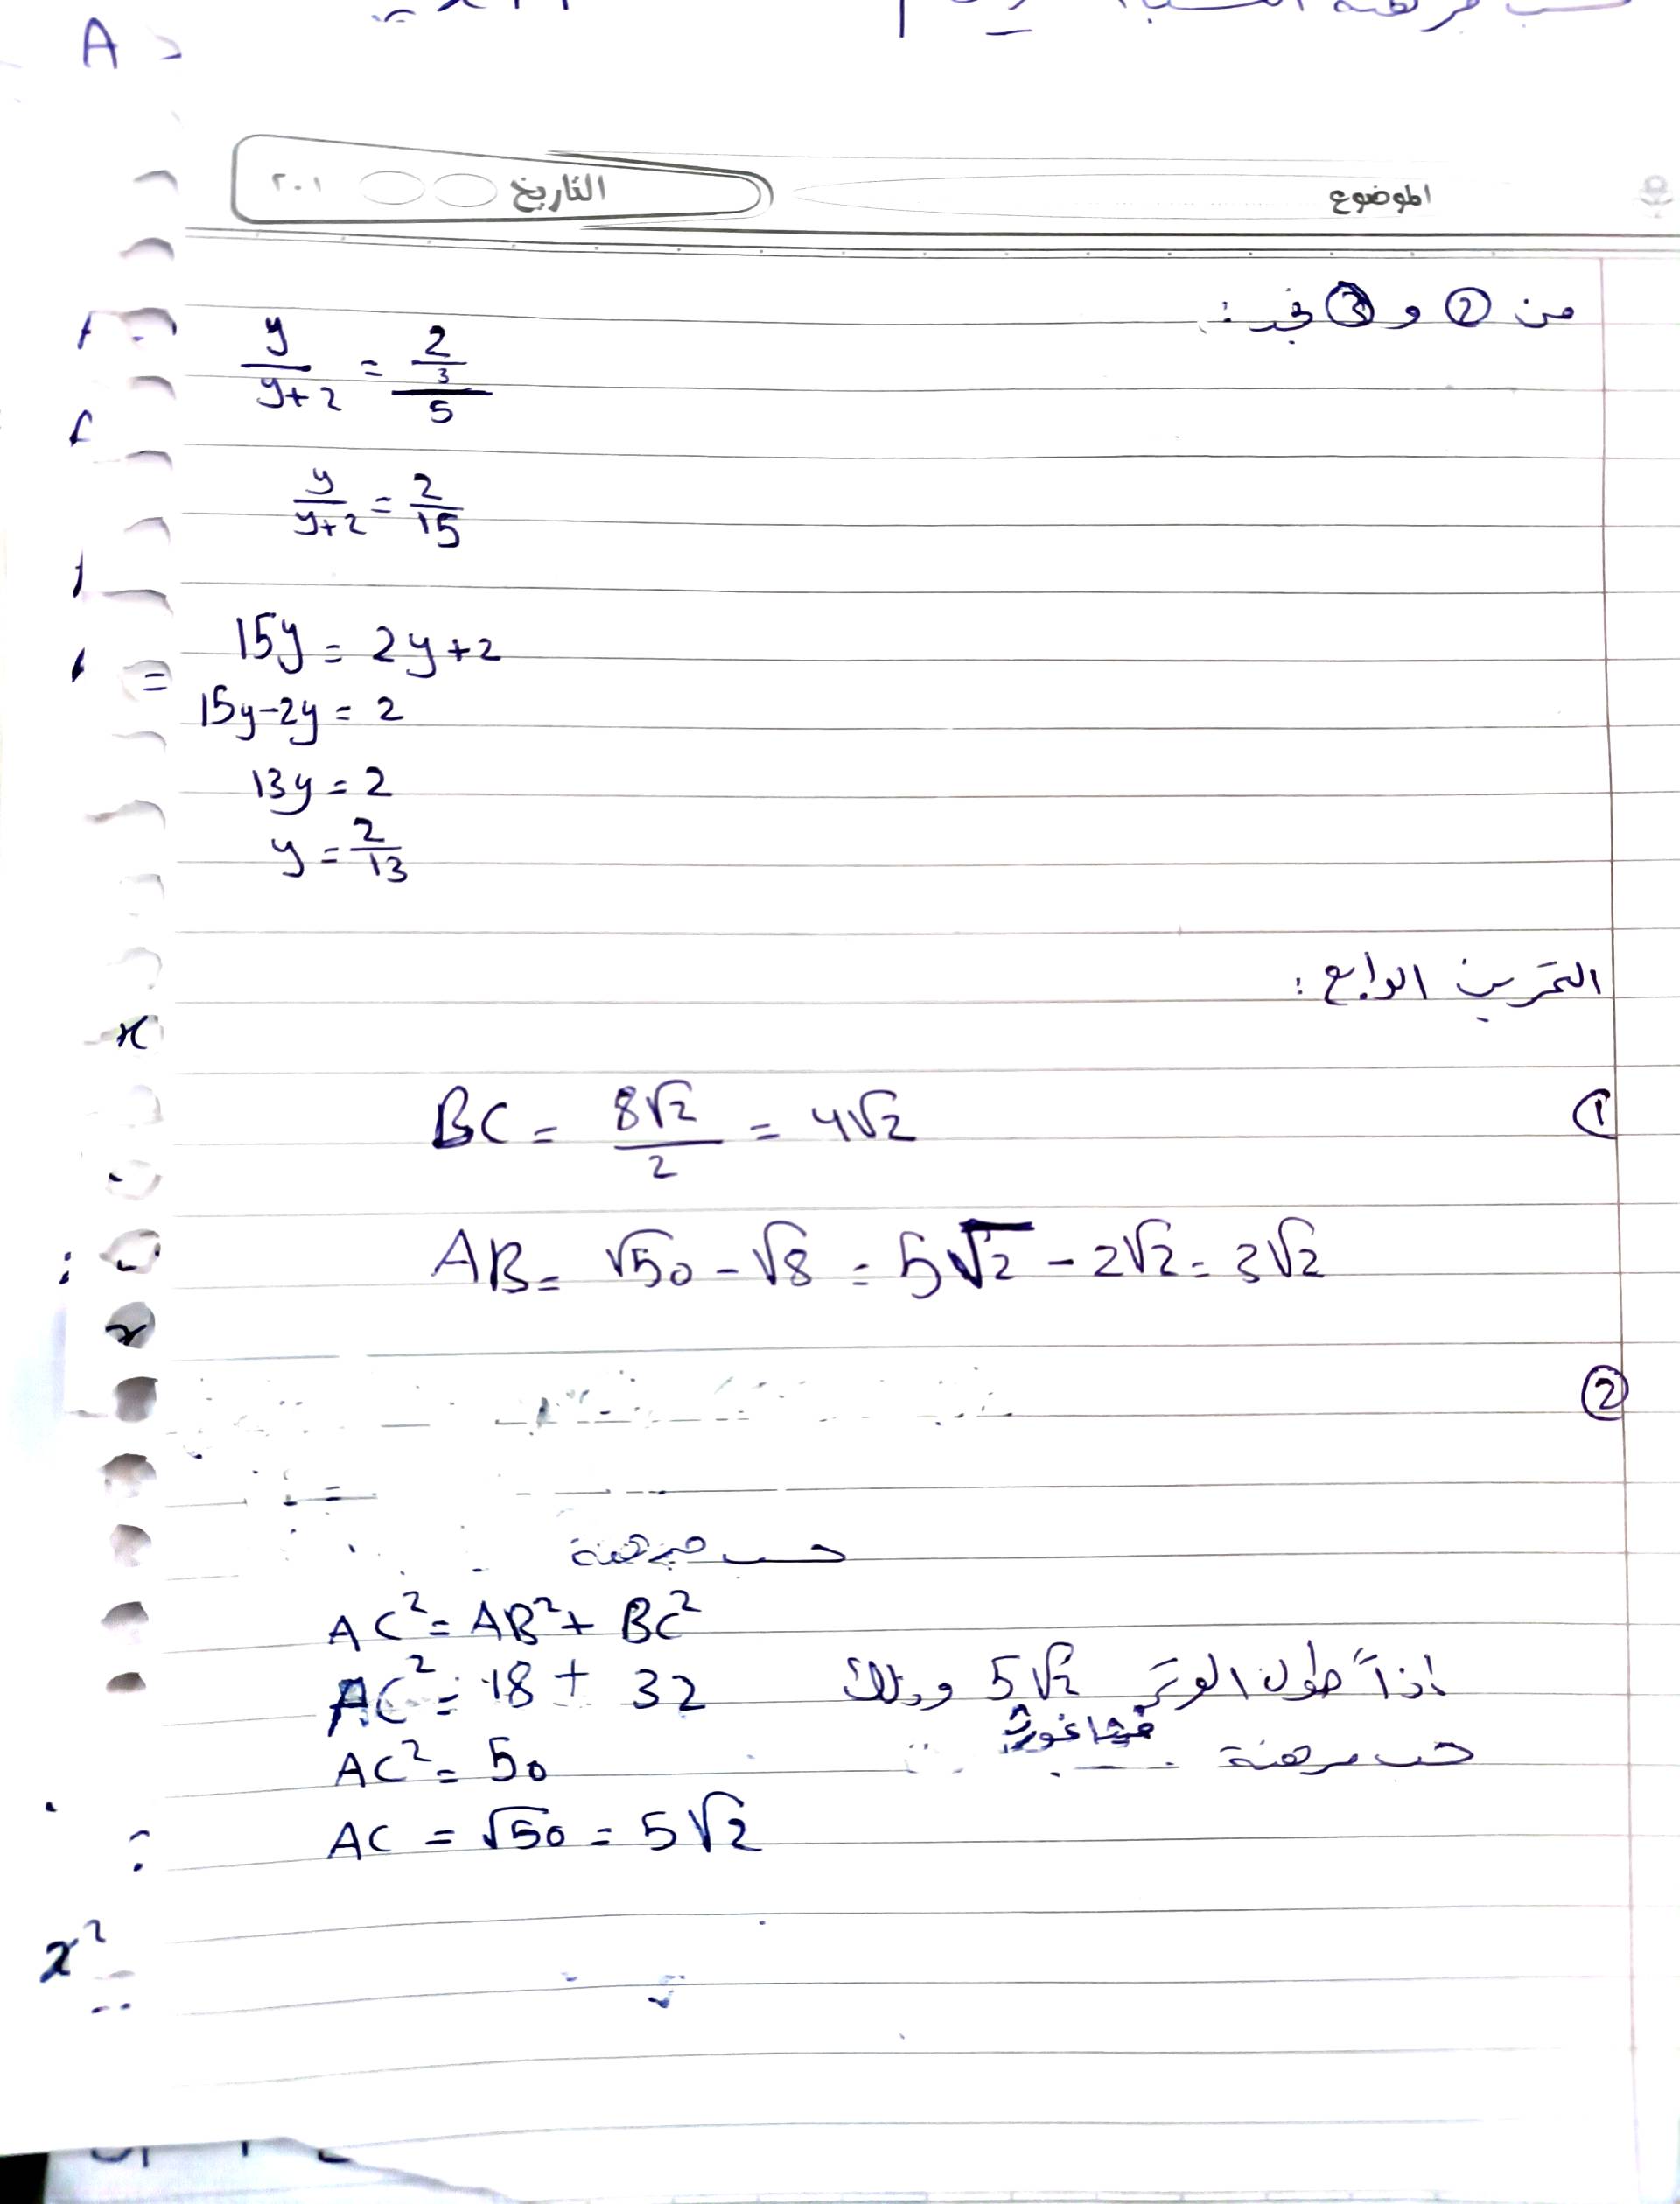 A
الموضوع
التاريخ ٢٠١
من ② و ③ نجد :
y/(y+2) = (2/3)/5
y/(y+2) = 2/15
15y = 2y+2
15y-2y = 2
13y = 2
y = 2/13
التمرين الرابع :
① BC = 8√2/2 = 4√2
AB = √50 - √8 = 5√2 - 2√2 = 3√2
②
حسب مبرهنة
AC² = AB² + BC²
AC² = 18 + 32
اذاً طول الوتر 5√2 وذلك
حسب مبرهنة فيثاغورث
AC² = 50
AC = √50 = 5√2
x²